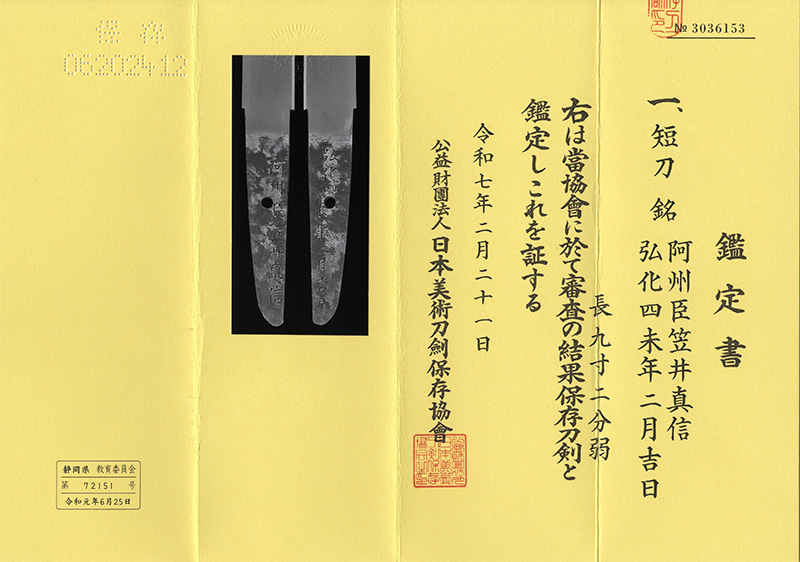 № 3036153
鑑定書
一、短刀 銘 阿州臣笠井真信
弘化四未年二月吉日
長九寸二分弱
右は當協會に於て審査の結果保存刀剣と
鑑定しこれを証する
令和七年二月二十一日
公益財團法人 日本美術刀劍保存協會
保存
06202412
静岡県 教育委員会
第 72151 号
令和元年6月25日